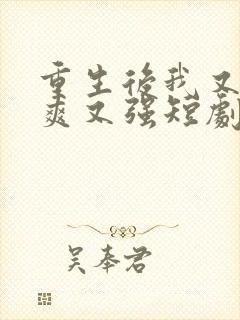 重生後我又
爽又强短劇
吴奉君